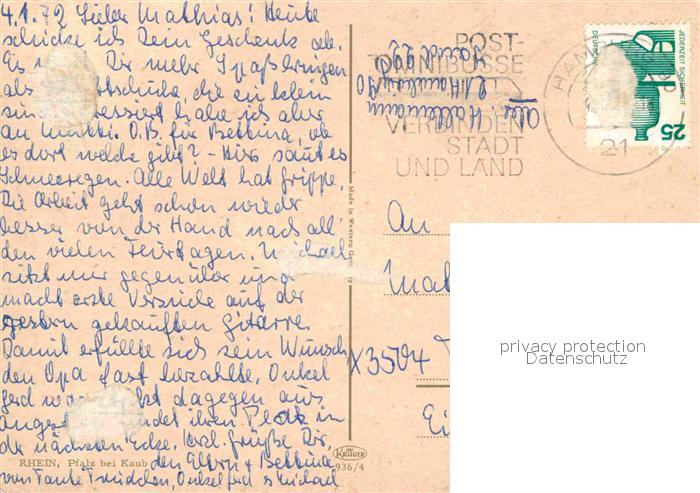 4.1.72 Lieber Mathias! Heute
schicke ich Dein Geschenk ab.
Es Dir mehr Spaß bringen
als die zu klein
ich aber
an Mutti. O.B. für Bettina, ob
es dort welche gibt? - Hier saut es
Schneeregen. Alle Welt hat Grippe.
Die Arbeit geht schon wieder
besser von der Hand nach all
den vielen Feiertagen. Michael
sitzt mir gegenüber und
macht erste Versuche auf der
gestern gekauften Gitarre.
Damit erfüllte sich sein Wunsch,
den Opa fast bezahlte. Onkel
Gerd dagegen aus
ihren Platz in
der nächsten Ecke. Herzl. Grüße Dir,
den Eltern + Bettina
von Tante Trudchen, Onkel Gerd + Michael
RHEIN, Pfalz bei Kaub
Made in Western Germany
KRÜGER
936/4
POST-
OMNIBUSSE
VERBINDEN
STADT
UND LAND
HAMBURG
21
DEUTSCHE
JEDERZEIT SICHERHEIT
25
An
X3504
privacy protection
Datenschutz